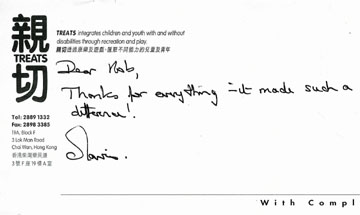 親切
TREATS
TREATS integrates children and youth with and without
disabilities through recreation and play.
親切透過康樂及遊戲,匯聚不同能力的兒童及青年
Dear Rob,
Thanks for everything - it made such a
difference!
Tel: 2889 1332
Fax: 2898 3385
19A, Block F
3 Lok Man Road
Chai Wan, Hong Kong
香港柴灣樂民道
3號F座19樓A室
With Compl